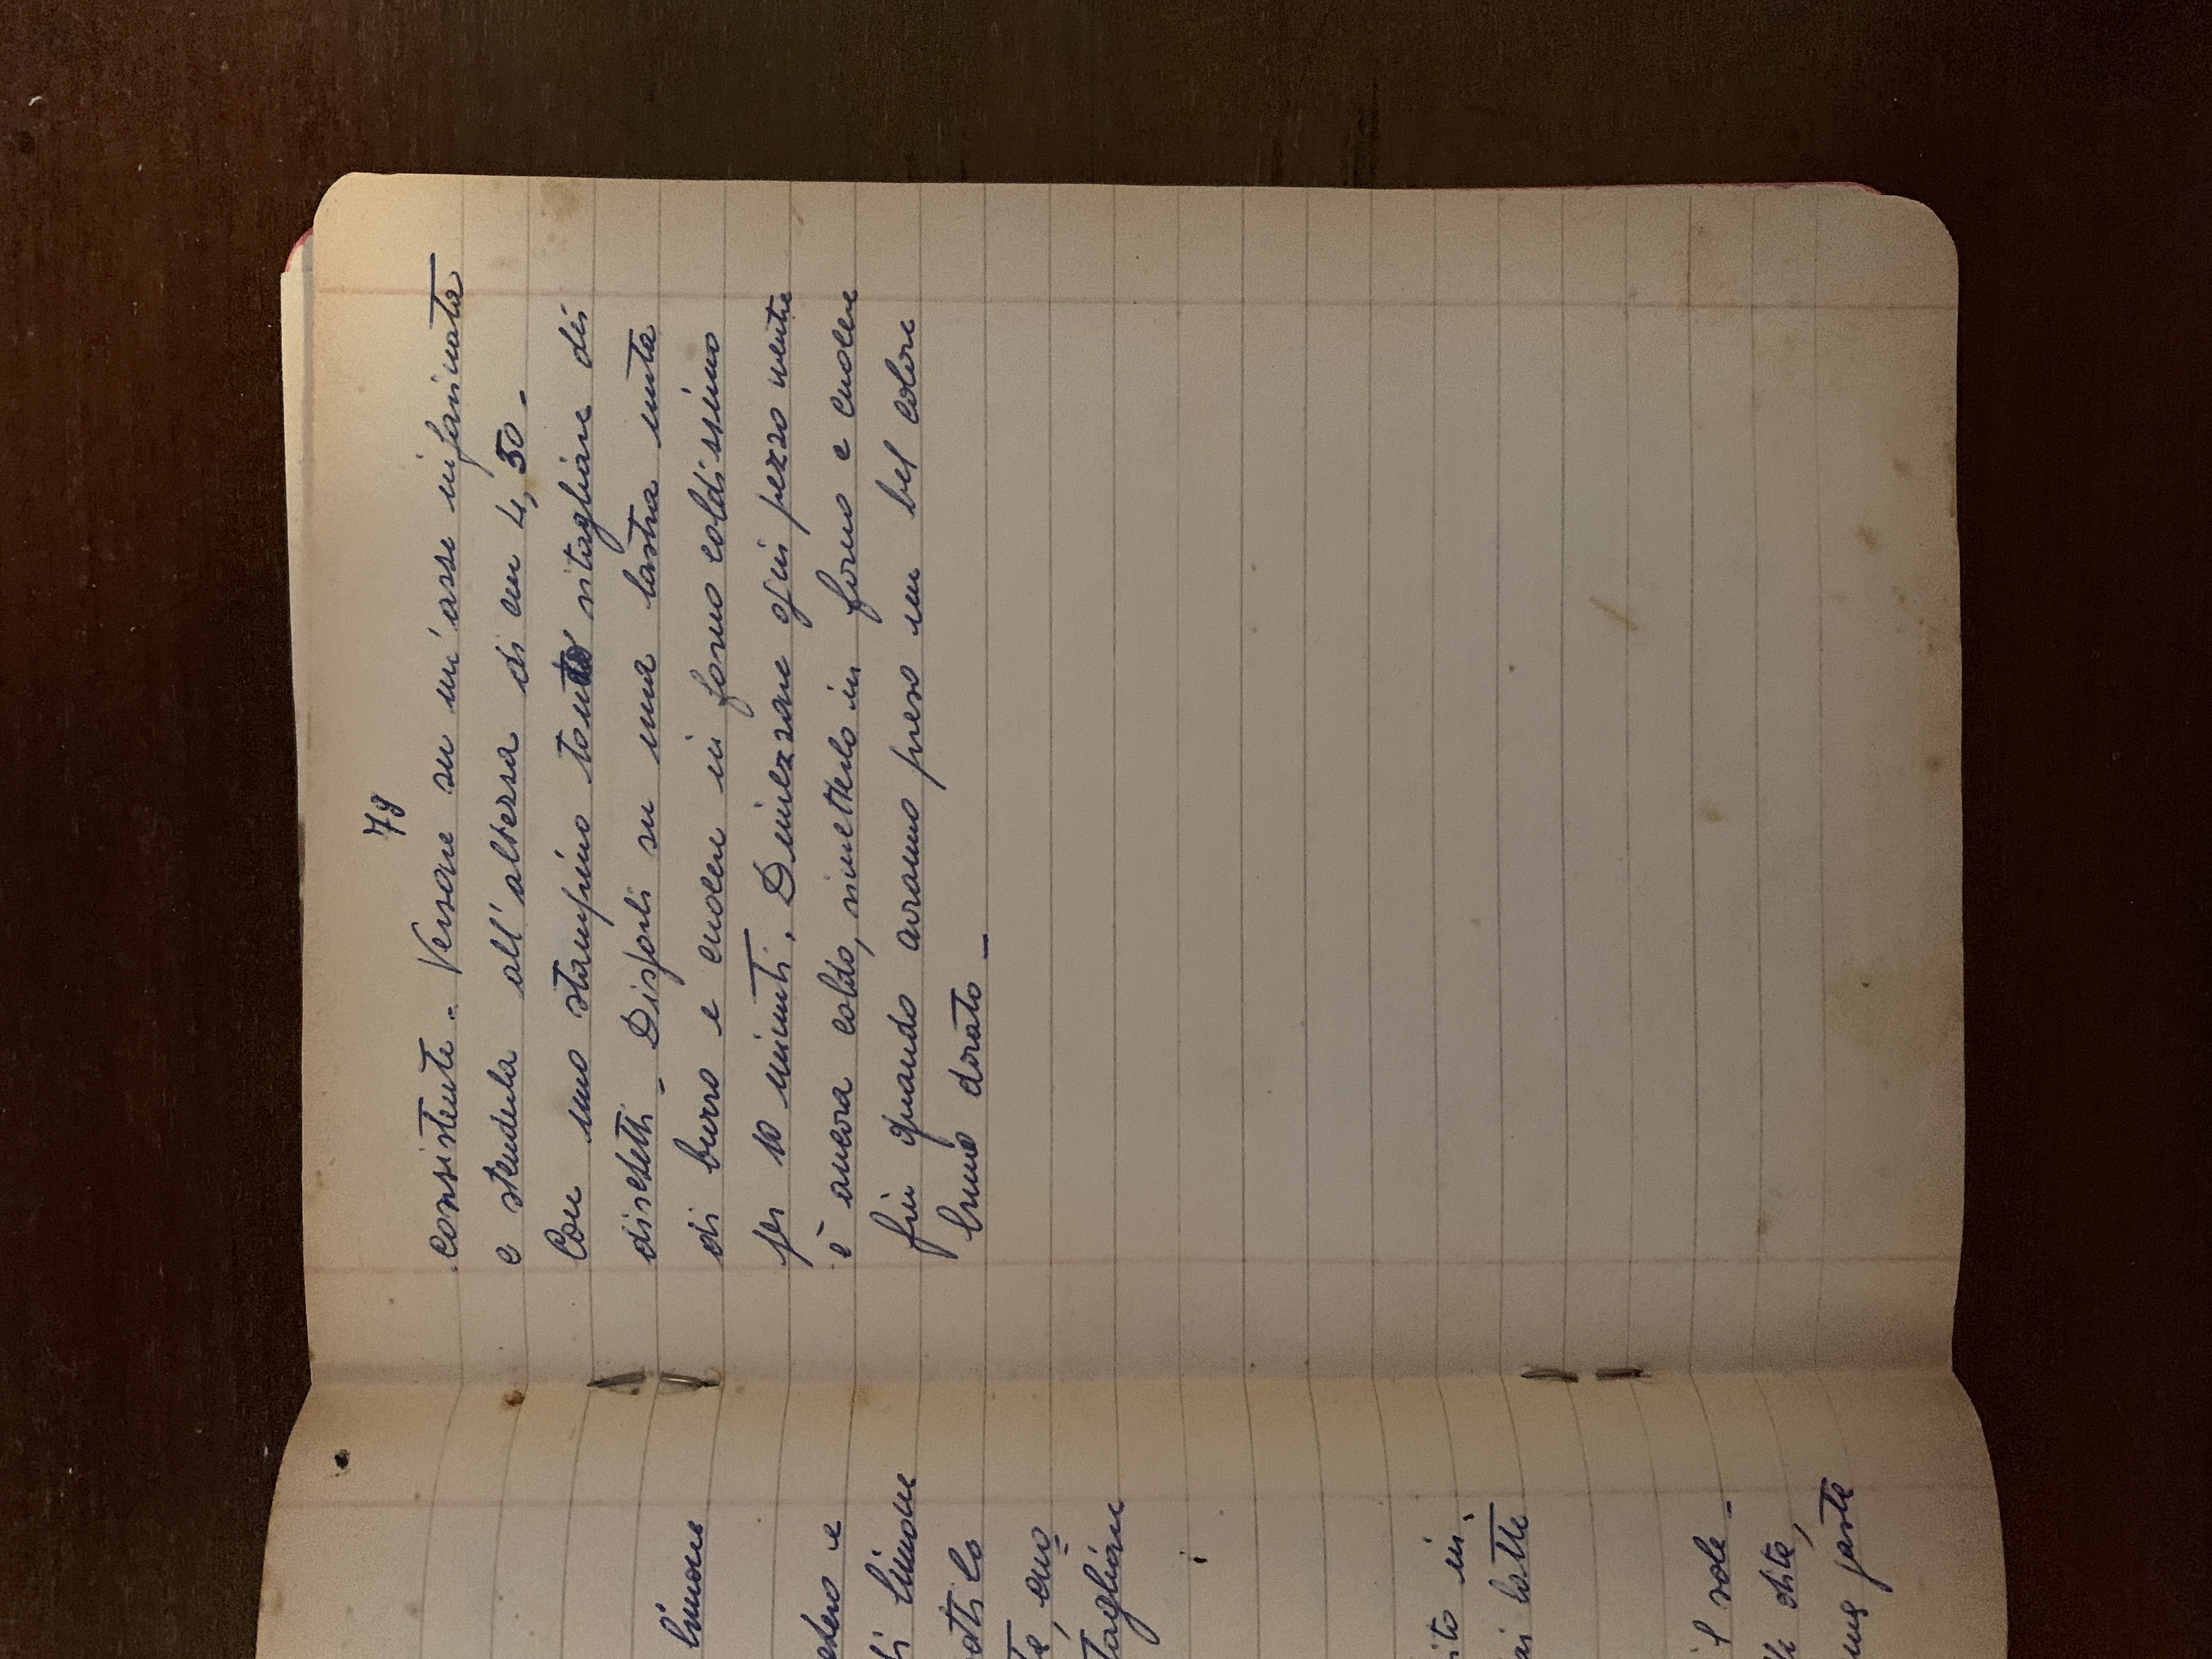 limone
etero e
di limone
te, cuo
tagliare
ito in,
ai latte
il sole -
lle dita,
una pasta
79
consistente - Versare su un'asse infarinata
e stenderla all'altezza di cm 4,50 -
Con uno stampino tondo ritagliare dei
dischetti - Disporli su una lastra unta
di burro e cuocere in forno caldissimo
per 10 minuti. Dimezzare ogni pezzo mentre
è ancora caldo, rimetterlo in forno e cuocere
fin quando avranno preso un bel colore
bruno dorato -